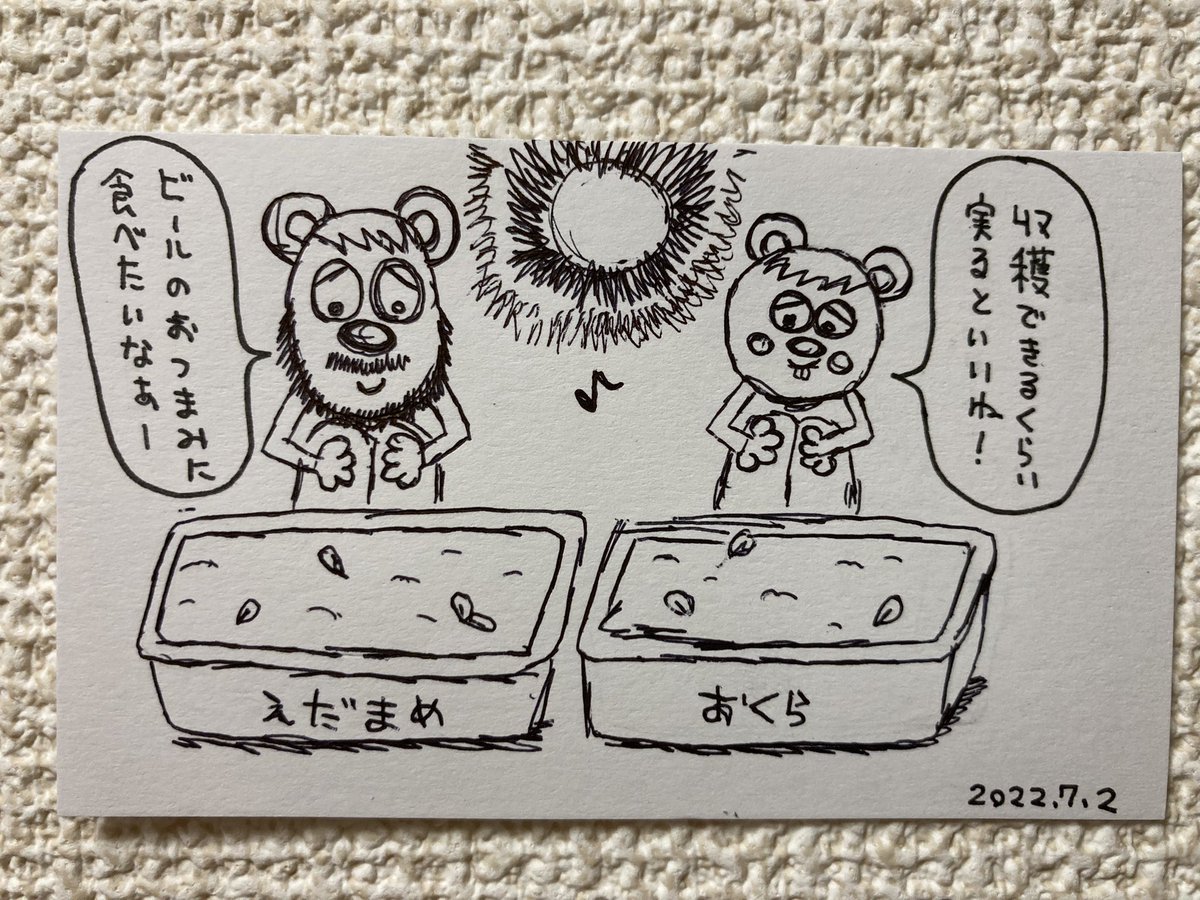 収穫できるくらい
実るといいね!
ビールのおつまみに
食べたいなぁー
えだまめ
おくら
2022.7.2